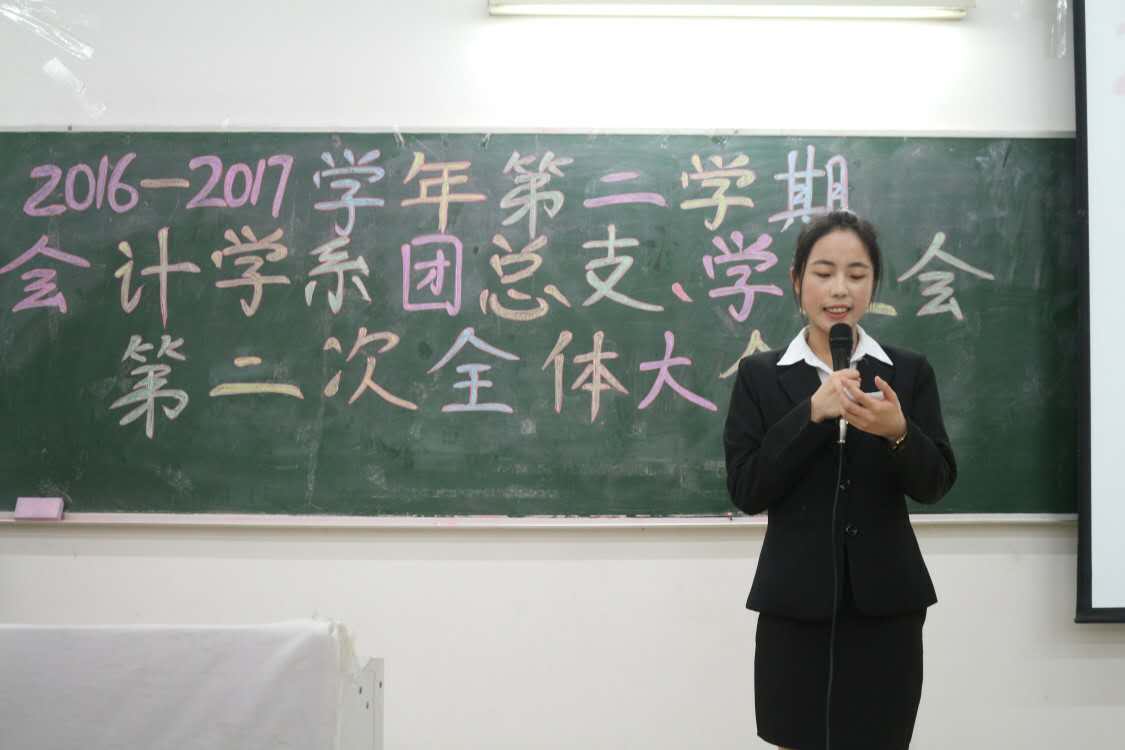 2016-2017学年第二学期
会计学系团总支、学生会
第二次全体大会